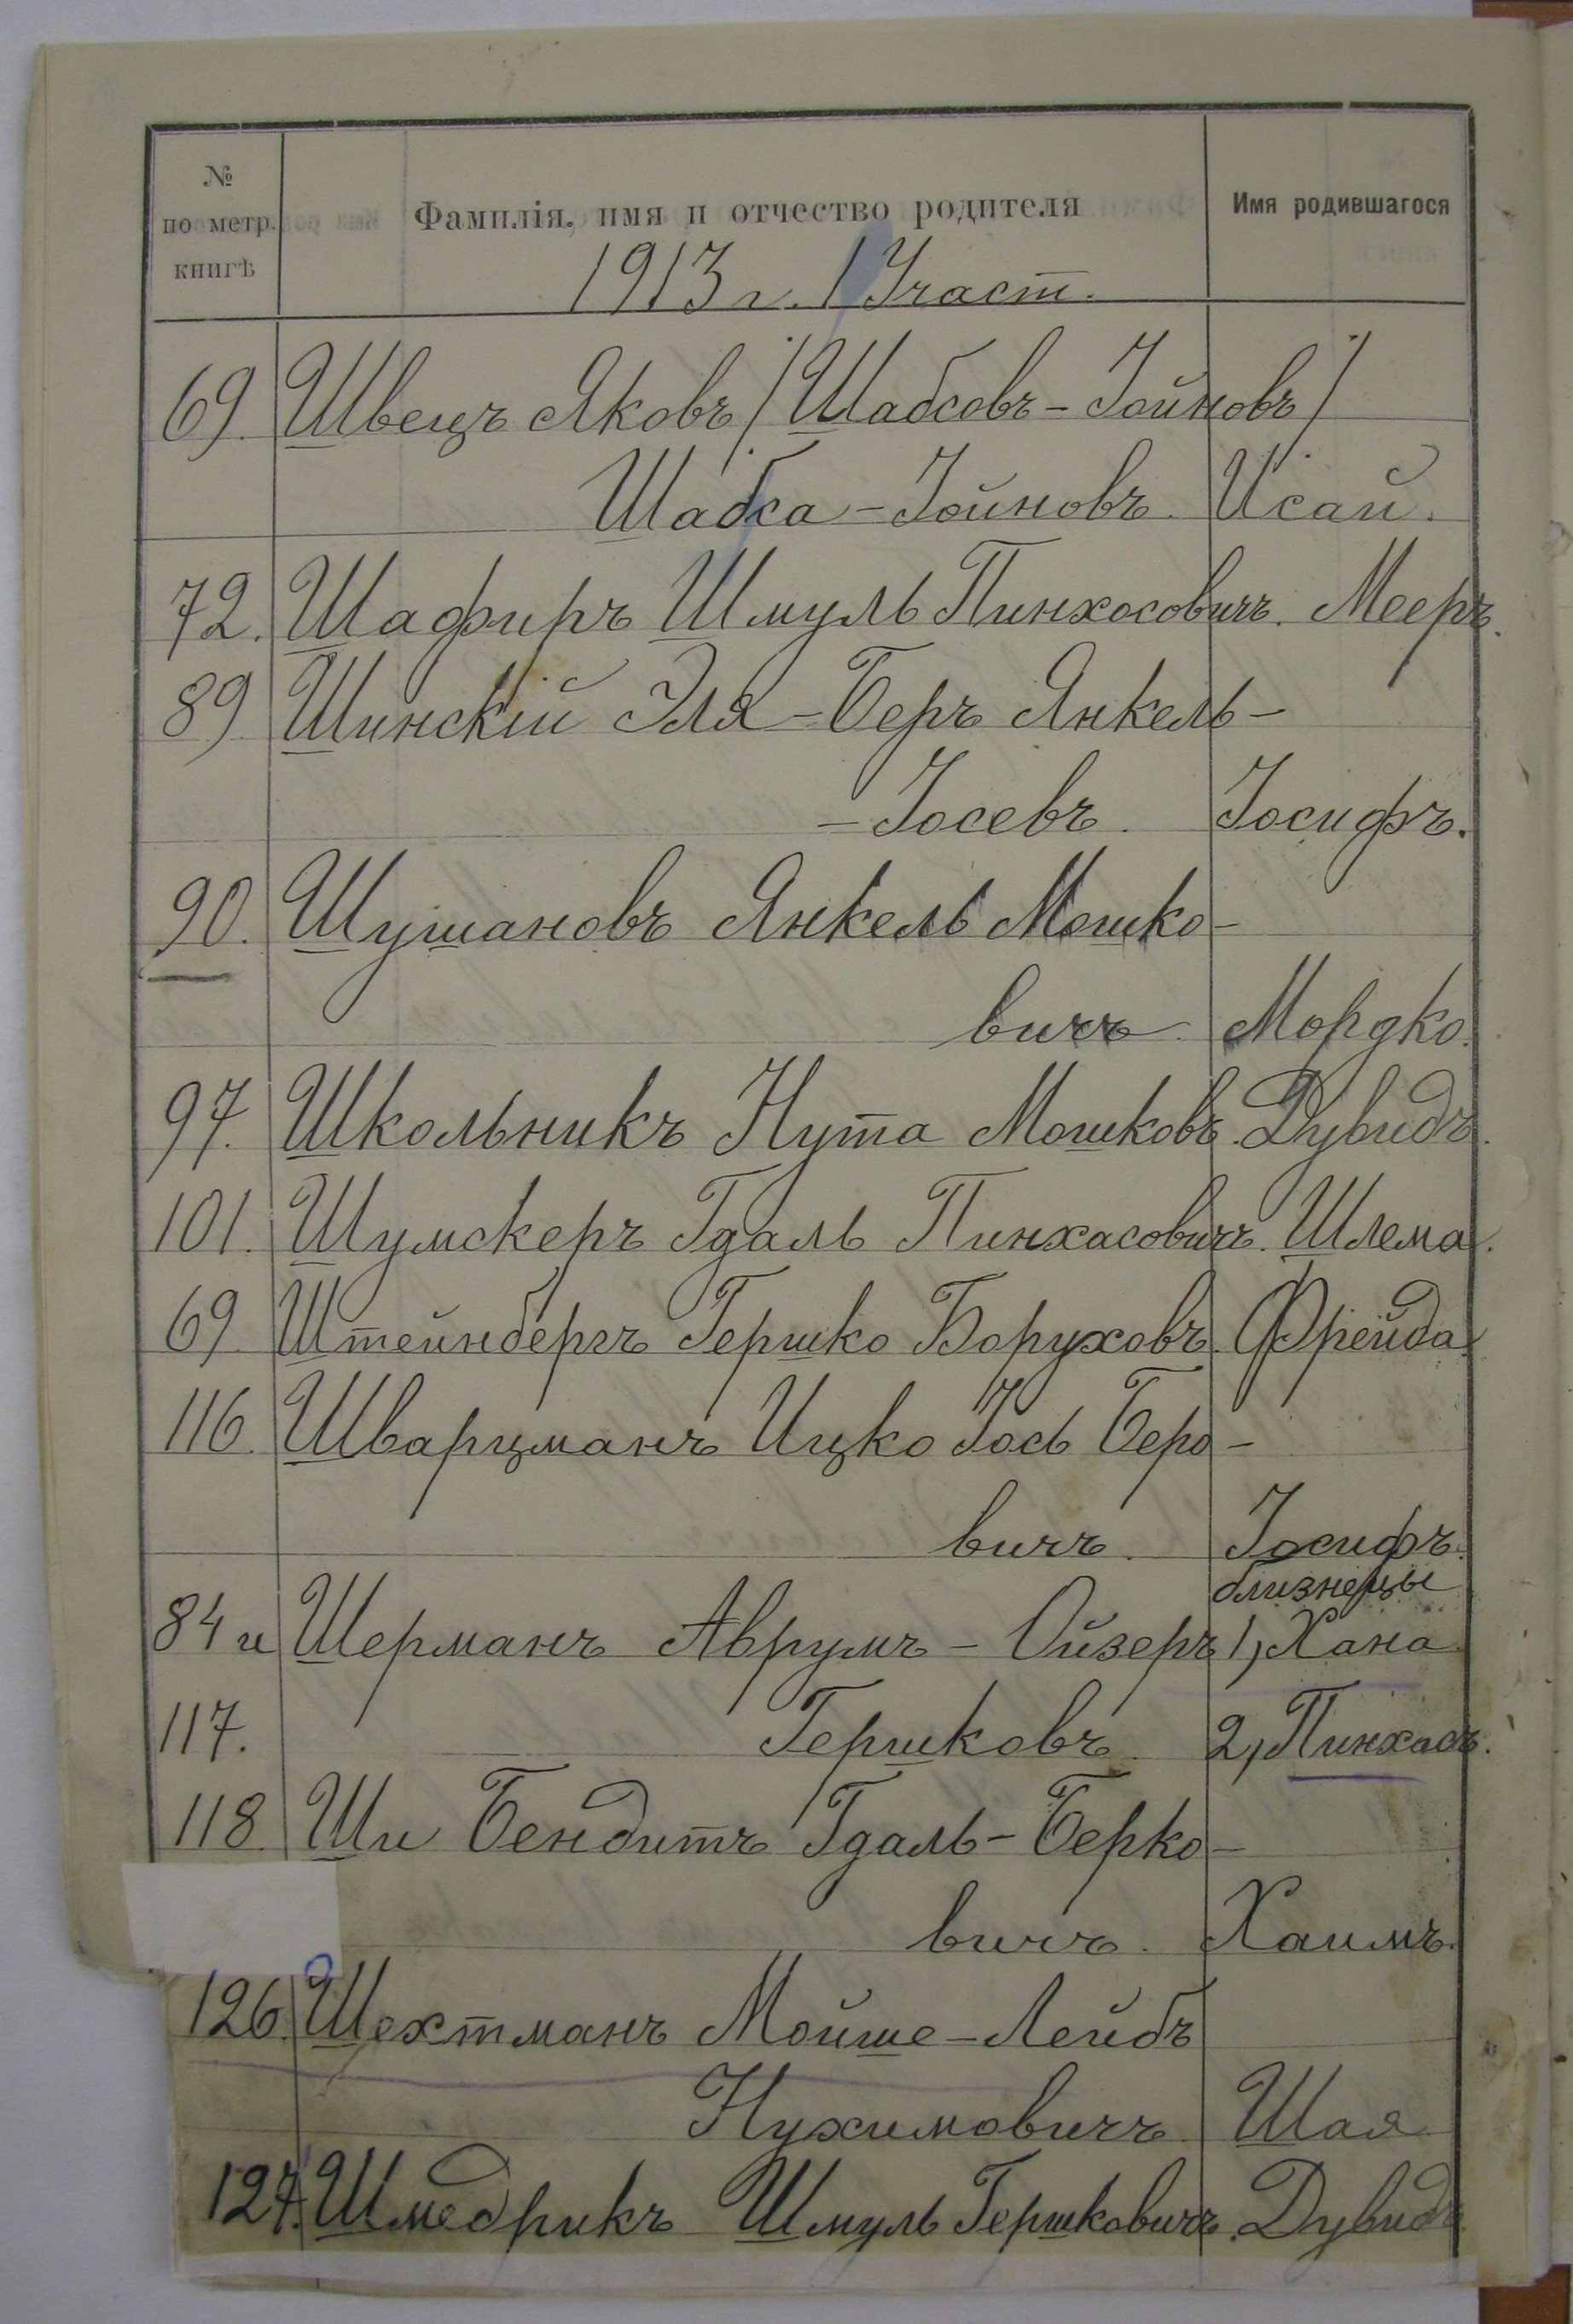 № по метр. книгѣ
Фамилія, имя и отчество родителя
Имя родившагося
1913 г. 1 Участ.
69. Швецъ Яковъ /Шабсовъ-Іойновъ/
Шабса-Іойновъ. Исай.
72. Шафиръ Шмуль Пинхосовичъ. Мееръ.
89 Шинскій Эля-Беръ Янкель-
-Іосевъ. Іосифъ.
90. Шушановъ Янкель Мошко-
вичъ. Мордко.
97. Школьникъ Нута Мошковъ. Дувидъ.
101. Шумскеръ Гдаль Пинхасовичъ. Шлема.
69 Штейнбергъ Гершко Боруховъ. Фрейда.
116. Шварцманъ Ицко Іось Беро-
вичъ. Іосифъ.
близнецы
84 и Шерманъ Аврумъ-Ойзеръ 1, Хана
117. Гершковъ 2, Пинхасъ.
118. Ши Бендитъ Гдаль-Берко-
вичъ. Хаимъ.
126. Шехтманъ Мойше-Лейбъ
Нухимовичъ. Шая
127. Шмедрикъ Шмуль Гершковичъ. Дувидъ